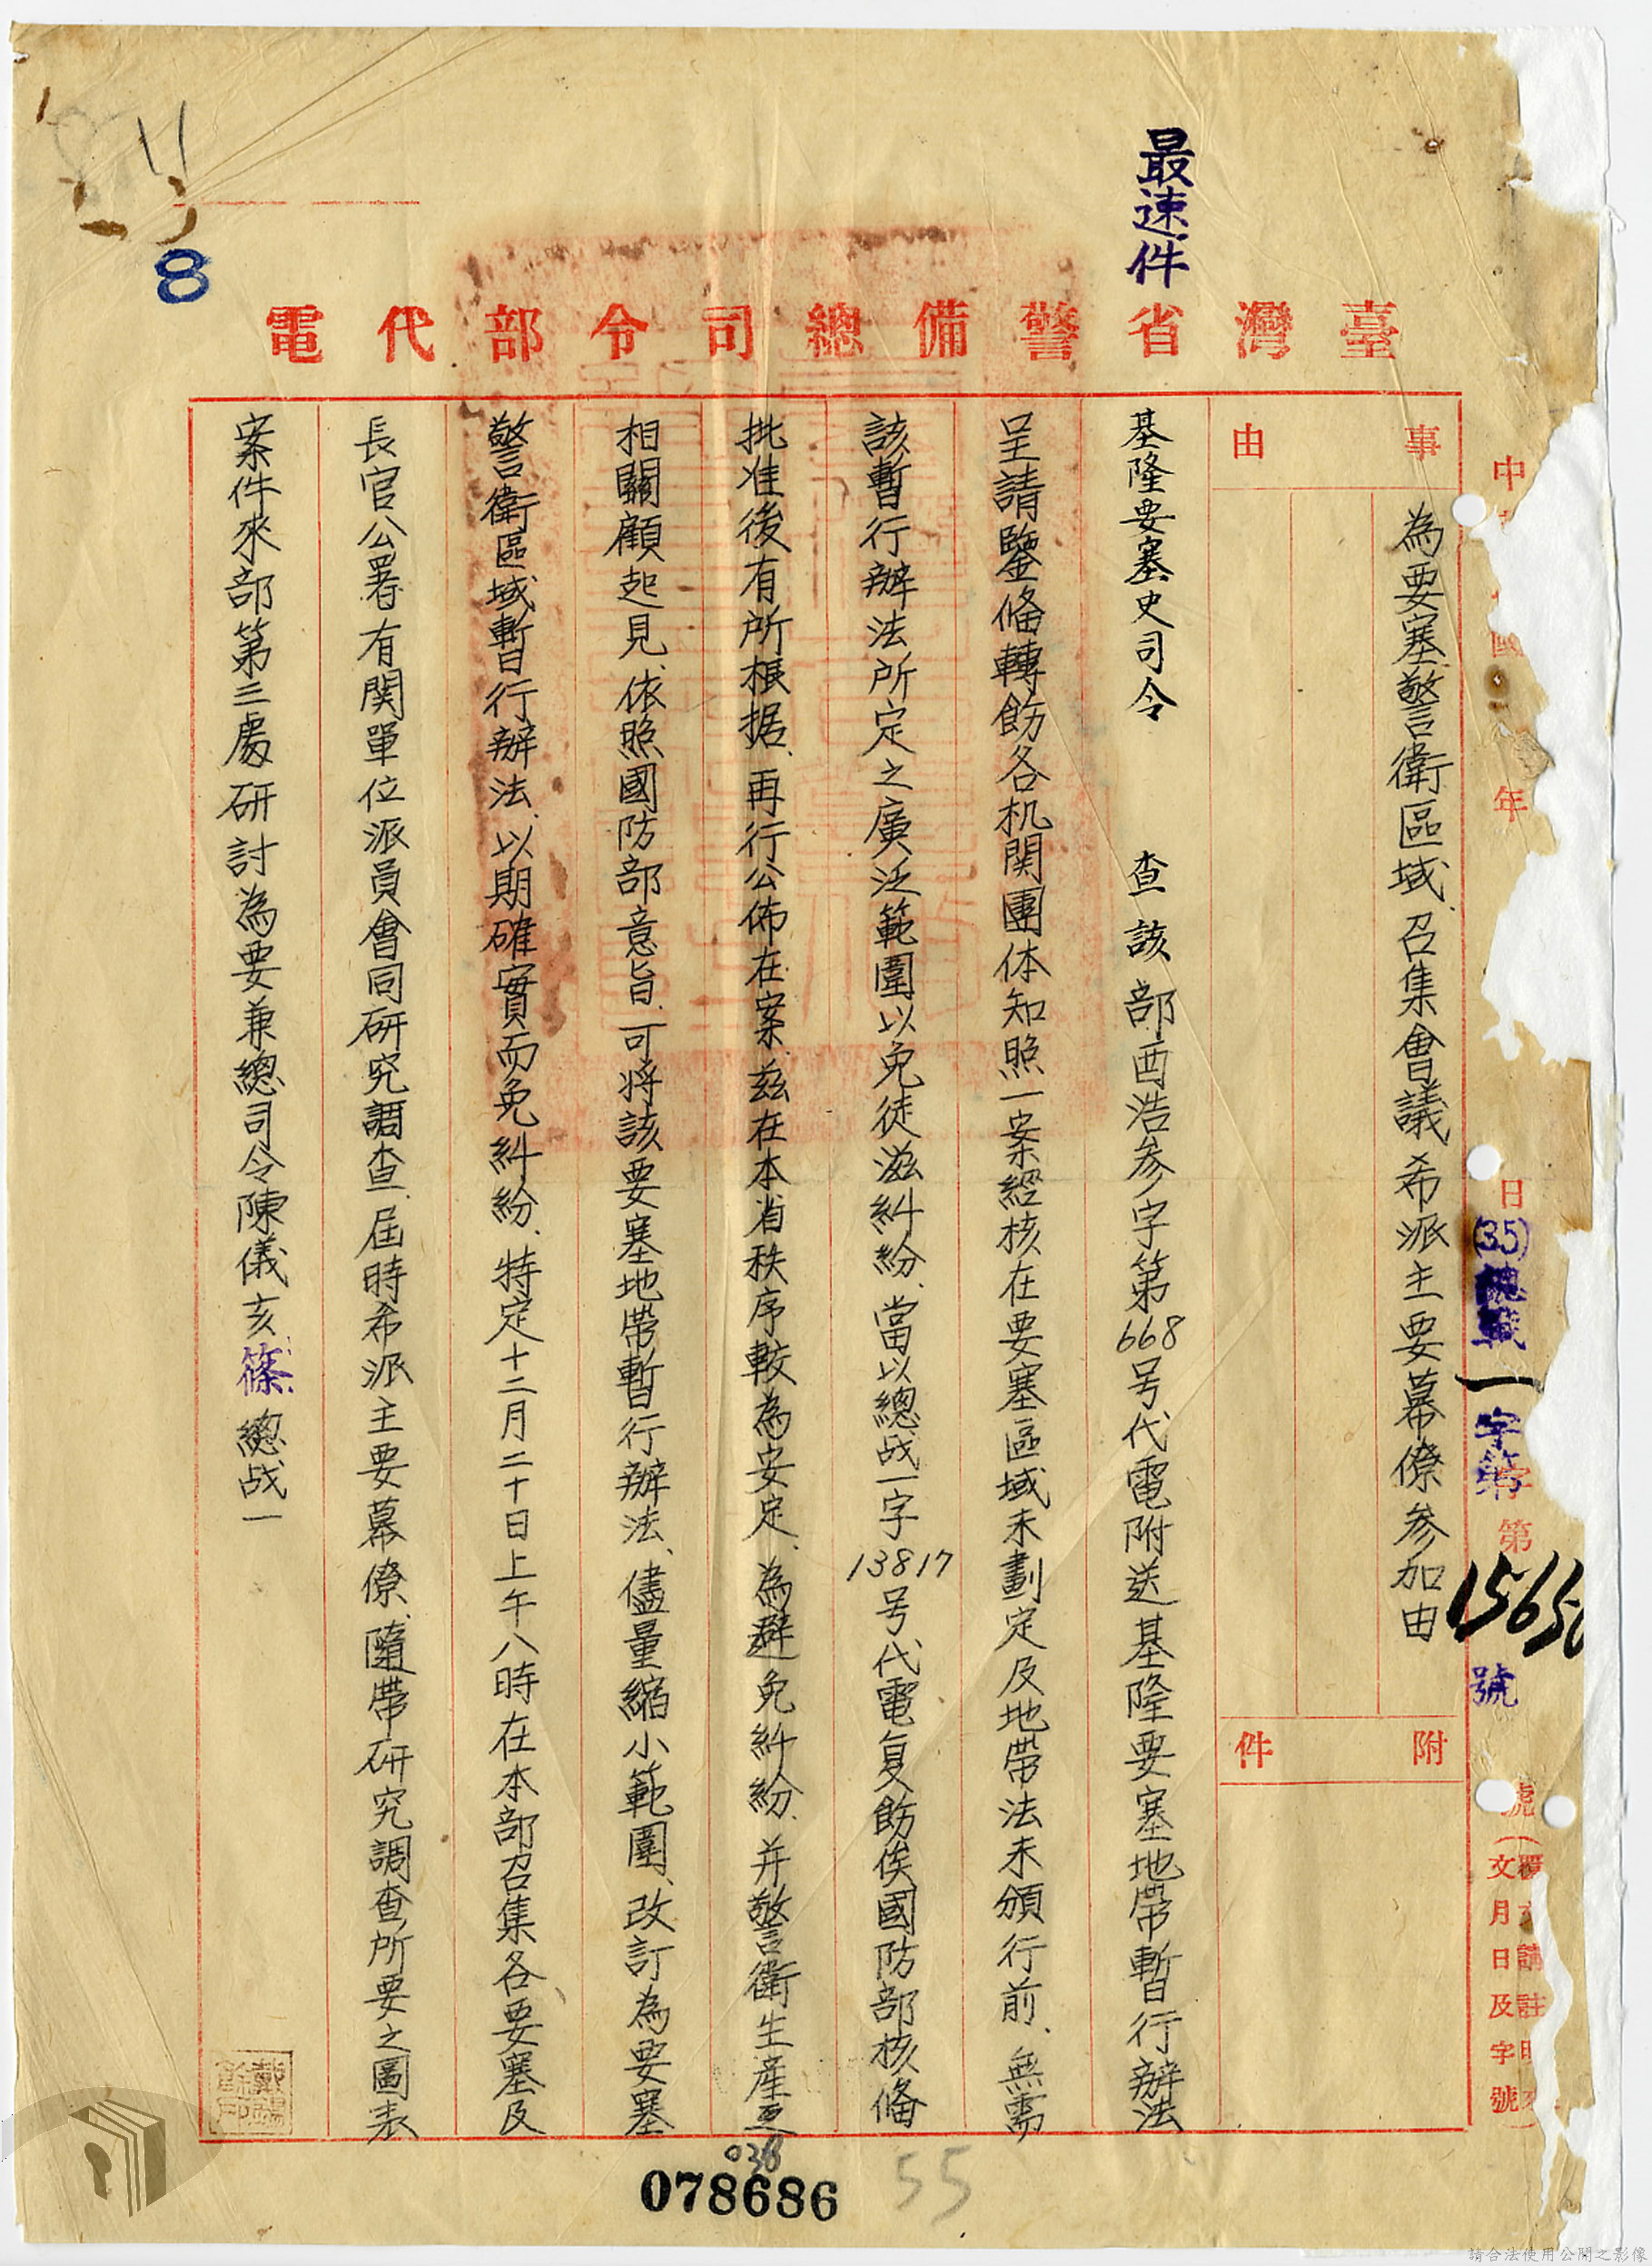 最速件
8
臺灣省警備總司令部代電
中
國
年
日
字第
號
(35)總戰一字第
號
文月日及字號
事由
為要塞警衛區域、召集會議希派主要幕僚參加由
附件
基隆要塞史司令 查該部酉浩参字第668号代電附送基隆要塞地帶暫行辦法
呈請鑒俻轉飭各机関團体知照一案經核在要塞區域未劃定及地帶法未頒行前、無需
該暫行辦法所定之廣泛範圍以免徒滋糾紛、當以總战一字13817号代電复飭俟國防部核俻
批准後有所根据、再行公佈在案、茲在本省秩序較為安定、為避免糾紛、并警衛生產互
相關顧起見、依照國防部意旨、可將該要塞地帶暫行辦法、儘量縮小範圍、改訂為要塞
警衛區域暫行辦法、以期確實而免糾紛、特定十二月二十日上午八時在本部召集各要塞及
長官公署有関單位派員會同研究調查、屆時希派主要幕僚、隨帶研究調查所要之圖表
案件來部第三處研討為要兼總司令陳儀亥篠總战一
038
078686
55
請合法使用公開之影像